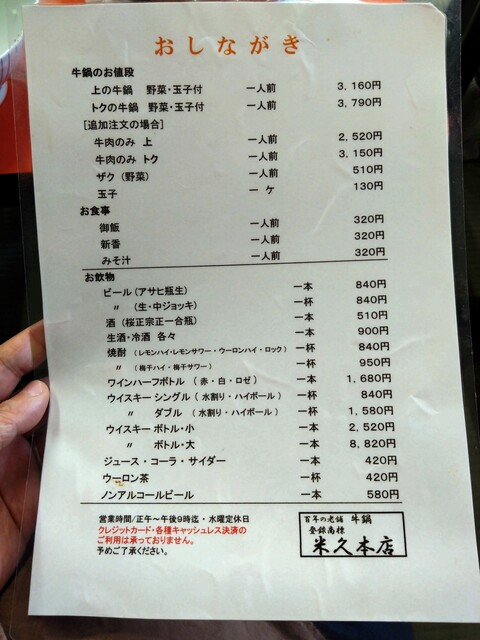 おしながき
牛鍋のお値段
上の牛鍋 野菜・玉子付 一人前 3,160円
トクの牛鍋 野菜・玉子付 一人前 3,790円
[追加注文の場合]
牛肉のみ 上 一人前 2,520円
牛肉のみ トク 一人前 3,150円
ザク（野菜） 一人前 510円
玉子 一ケ 130円
お食事
御飯 一人前 320円
新香 一人前 320円
みそ汁 一人前 320円
お飲物
ビール（アサヒ瓶生） 一本 840円
〃 （生・中ジョッキ） 一杯 840円
酒（桜正宗正一合瓶） 一本 510円
生酒・冷酒 各々 一本 900円
焼酎（レモンハイ・レモンサワー・ウーロンハイ・ロック） 一杯 840円
〃 （梅干ハイ・梅干サワー） 一杯 950円
ワインハーフボトル （赤・白・ロゼ） 一本 1,680円
ウイスキー シングル（水割り・ハイボール） 一杯 840円
〃 ダブル （水割り・ハイボール） 一杯 1,580円
ウイスキー ボトル・小 一本 2,520円
〃 ボトル・大 一本 8,820円
ジュース・コーラ・サイダー 一本 420円
ウーロン茶 一杯 420円
ノンアルコールビール 一本 580円
営業時間/正午～午後9時迄・水曜定休日
クレジットカード・各種キャッシュレス決済の
ご利用は承っておりません。
予めご了承ください。
百年の老舗 牛鍋
登録商標
米久本店